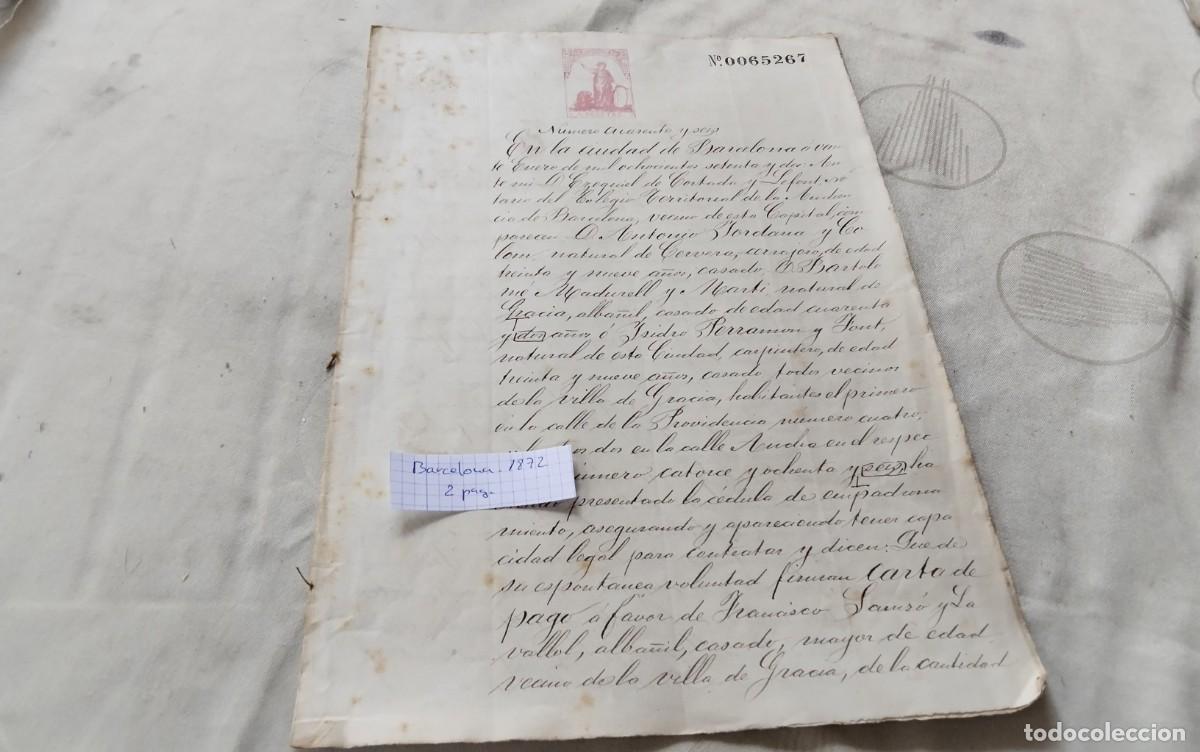 Nº 0065267
Número cuarenta y seis
En la ciudad de Barcelona á vein
te Enero de mil ochocientos setenta y dos: An
te mi D. Ezequiel de Cortada y Lafont, No
tario del Colegio Territorial de la Audien
cia de Barcelona, vecino de esta Capital, com
parecen D. Antonio Jordana y Co
lom, natural de Cervera, arrojero, de edad
treinta y nueve años, casado, D. Bartolo
mé Madurell y Martí natural de
Gracia, albañil, casado de edad cuarenta
y dos años é Isidro Perramon y Font,
natural de esta Ciudad, carpintero, de edad
treinta y nueve años, casado, todos vecinos
de la villa de Gracia, habitantes el primero
en la calle de la Providencia numero cuatro,
dos en la calle en el respec
número catorce y ochenta y seis, ha
presentado la cédula de empadrona
miento, asegurando y apareciendo tener capa
cidad legal para contratar y dicen: Que de
su espontanea voluntad firman carta de
pago á favor de Francisco Samsó y La
vallol, albañil, casado, mayor de edad
vecino de la villa de Gracia, de la cantidad
Barcelona. 1872
2 pag.
todocoleccion